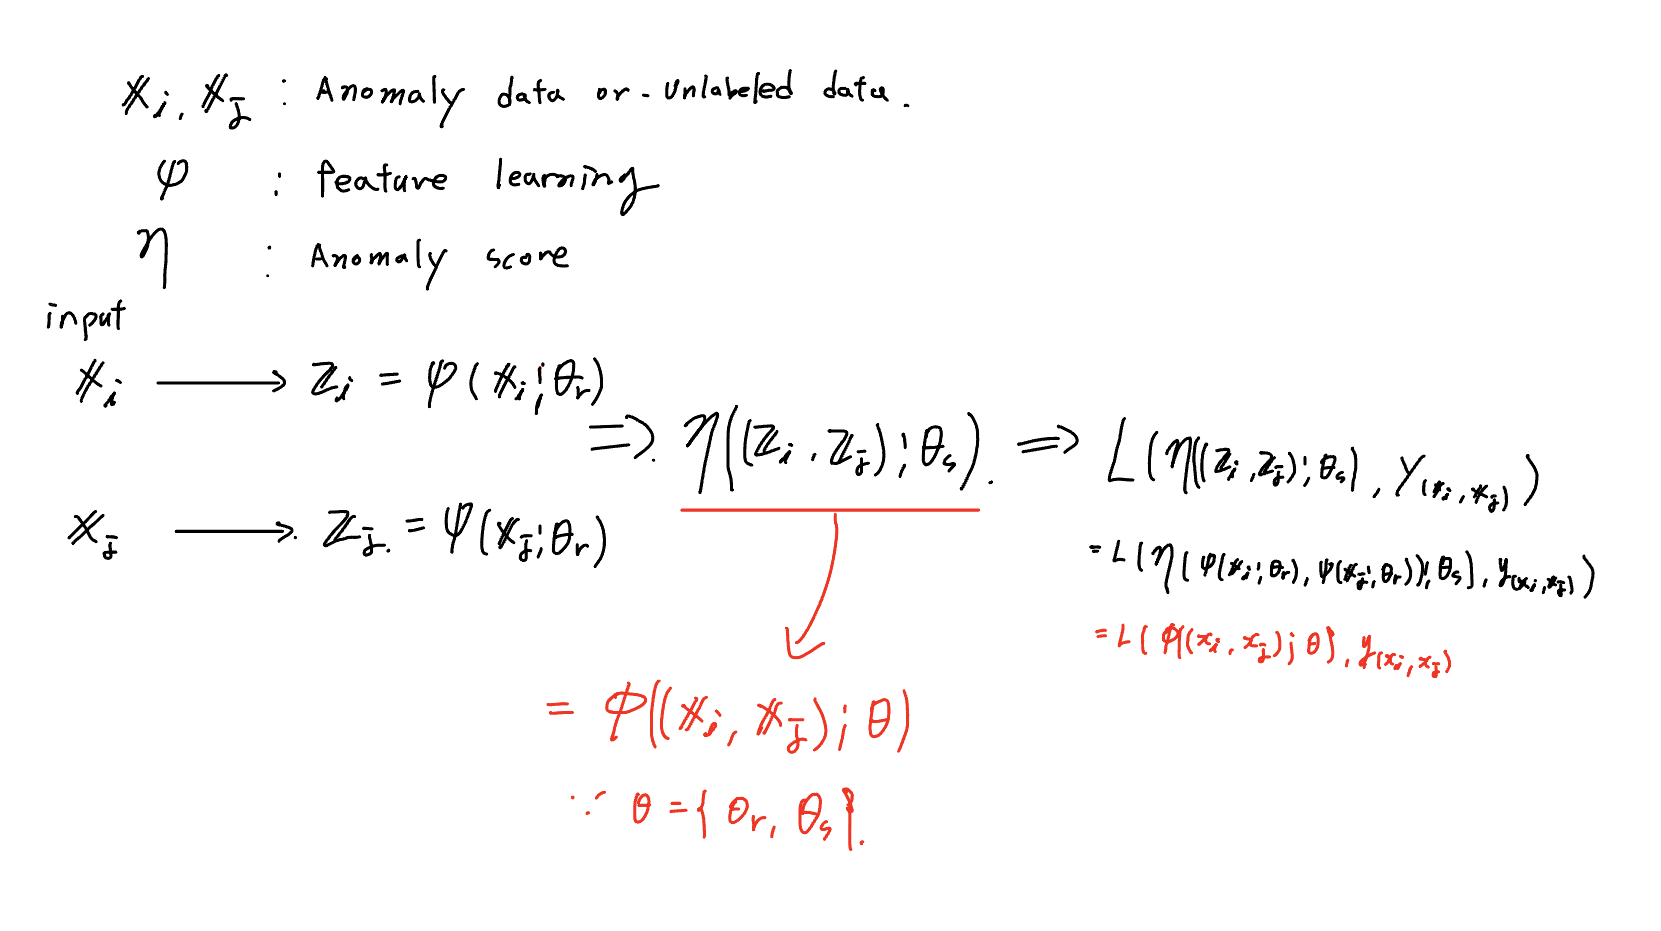 𝕏i, 𝕏j : Anomaly data or unlabeled data.
φ : feature learning
η : Anomaly score
input
𝕏i ⟶ ℤi = ψ(𝕏i;θr)
⇒ η((ℤi, ℤj);θs). ⇒ L(η((ℤi,ℤj);θs), Y(𝕏i,𝕏j))
𝕏j ⟶ ℤj. = ψ(𝕏j;θr)
= L(η(φ(𝕏i;θr), φ(𝕏j;θr));θs), y(xi,xj))
= L(ϕ((xi, xj);θ), y(xi,xj)
= ϕ((𝕏i, 𝕏j);θ)
∵ θ = {θr, θs}.